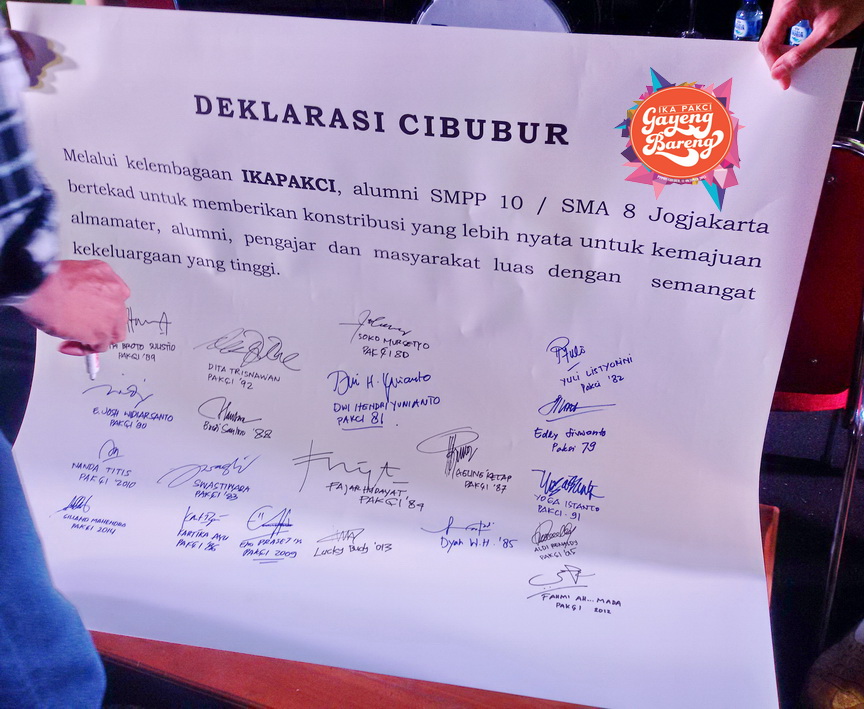 DEKLARASI CIBUBUR
IKA PAKCI
Gayeng
Bareng
Melalui kelembagaan IKAPAKCI, alumni SMPP 10 / SMA 8 Jogjakarta
bertekad untuk memberikan konstribusi yang lebih nyata untuk kemajuan
almamater, alumni, pengajar dan masyarakat luas dengan semangat
kekeluargaan yang tinggi.
BROTO SUSTIO
PAKCI '89
DITA TRISNAWAN
PAKCI '92
SOKO MURSETYO
PAKCI 80
YULI LISTYORINI
Pakci '82
E. JOSH WIDIARSANTO
PAKCI '90
Budi Santoso '88
Dwi H. Yunianto
DWI HENDRI YUNIANTO
PAKCI 81
Eddy Siswanto
Pakci 79
NANDA TITIS
PAKCI 2010
SWASTIMARA
PAKCI '83
FAJAR HIDAYAT
PAKCI '89
AGUNG KETAP
PAKCI '87
YOGA ISTANTO
PAKCI - 91
MAHENDRO
PAKCI 2014
KARTIKA AYU
PAKCI '86
EKO PRASETYA
PAKCI 2009
Lucky Budy '013
Dyah W.H. '85
ALDI
PAKCI '95
FAHMI AH... MADA
PAKCI 2012